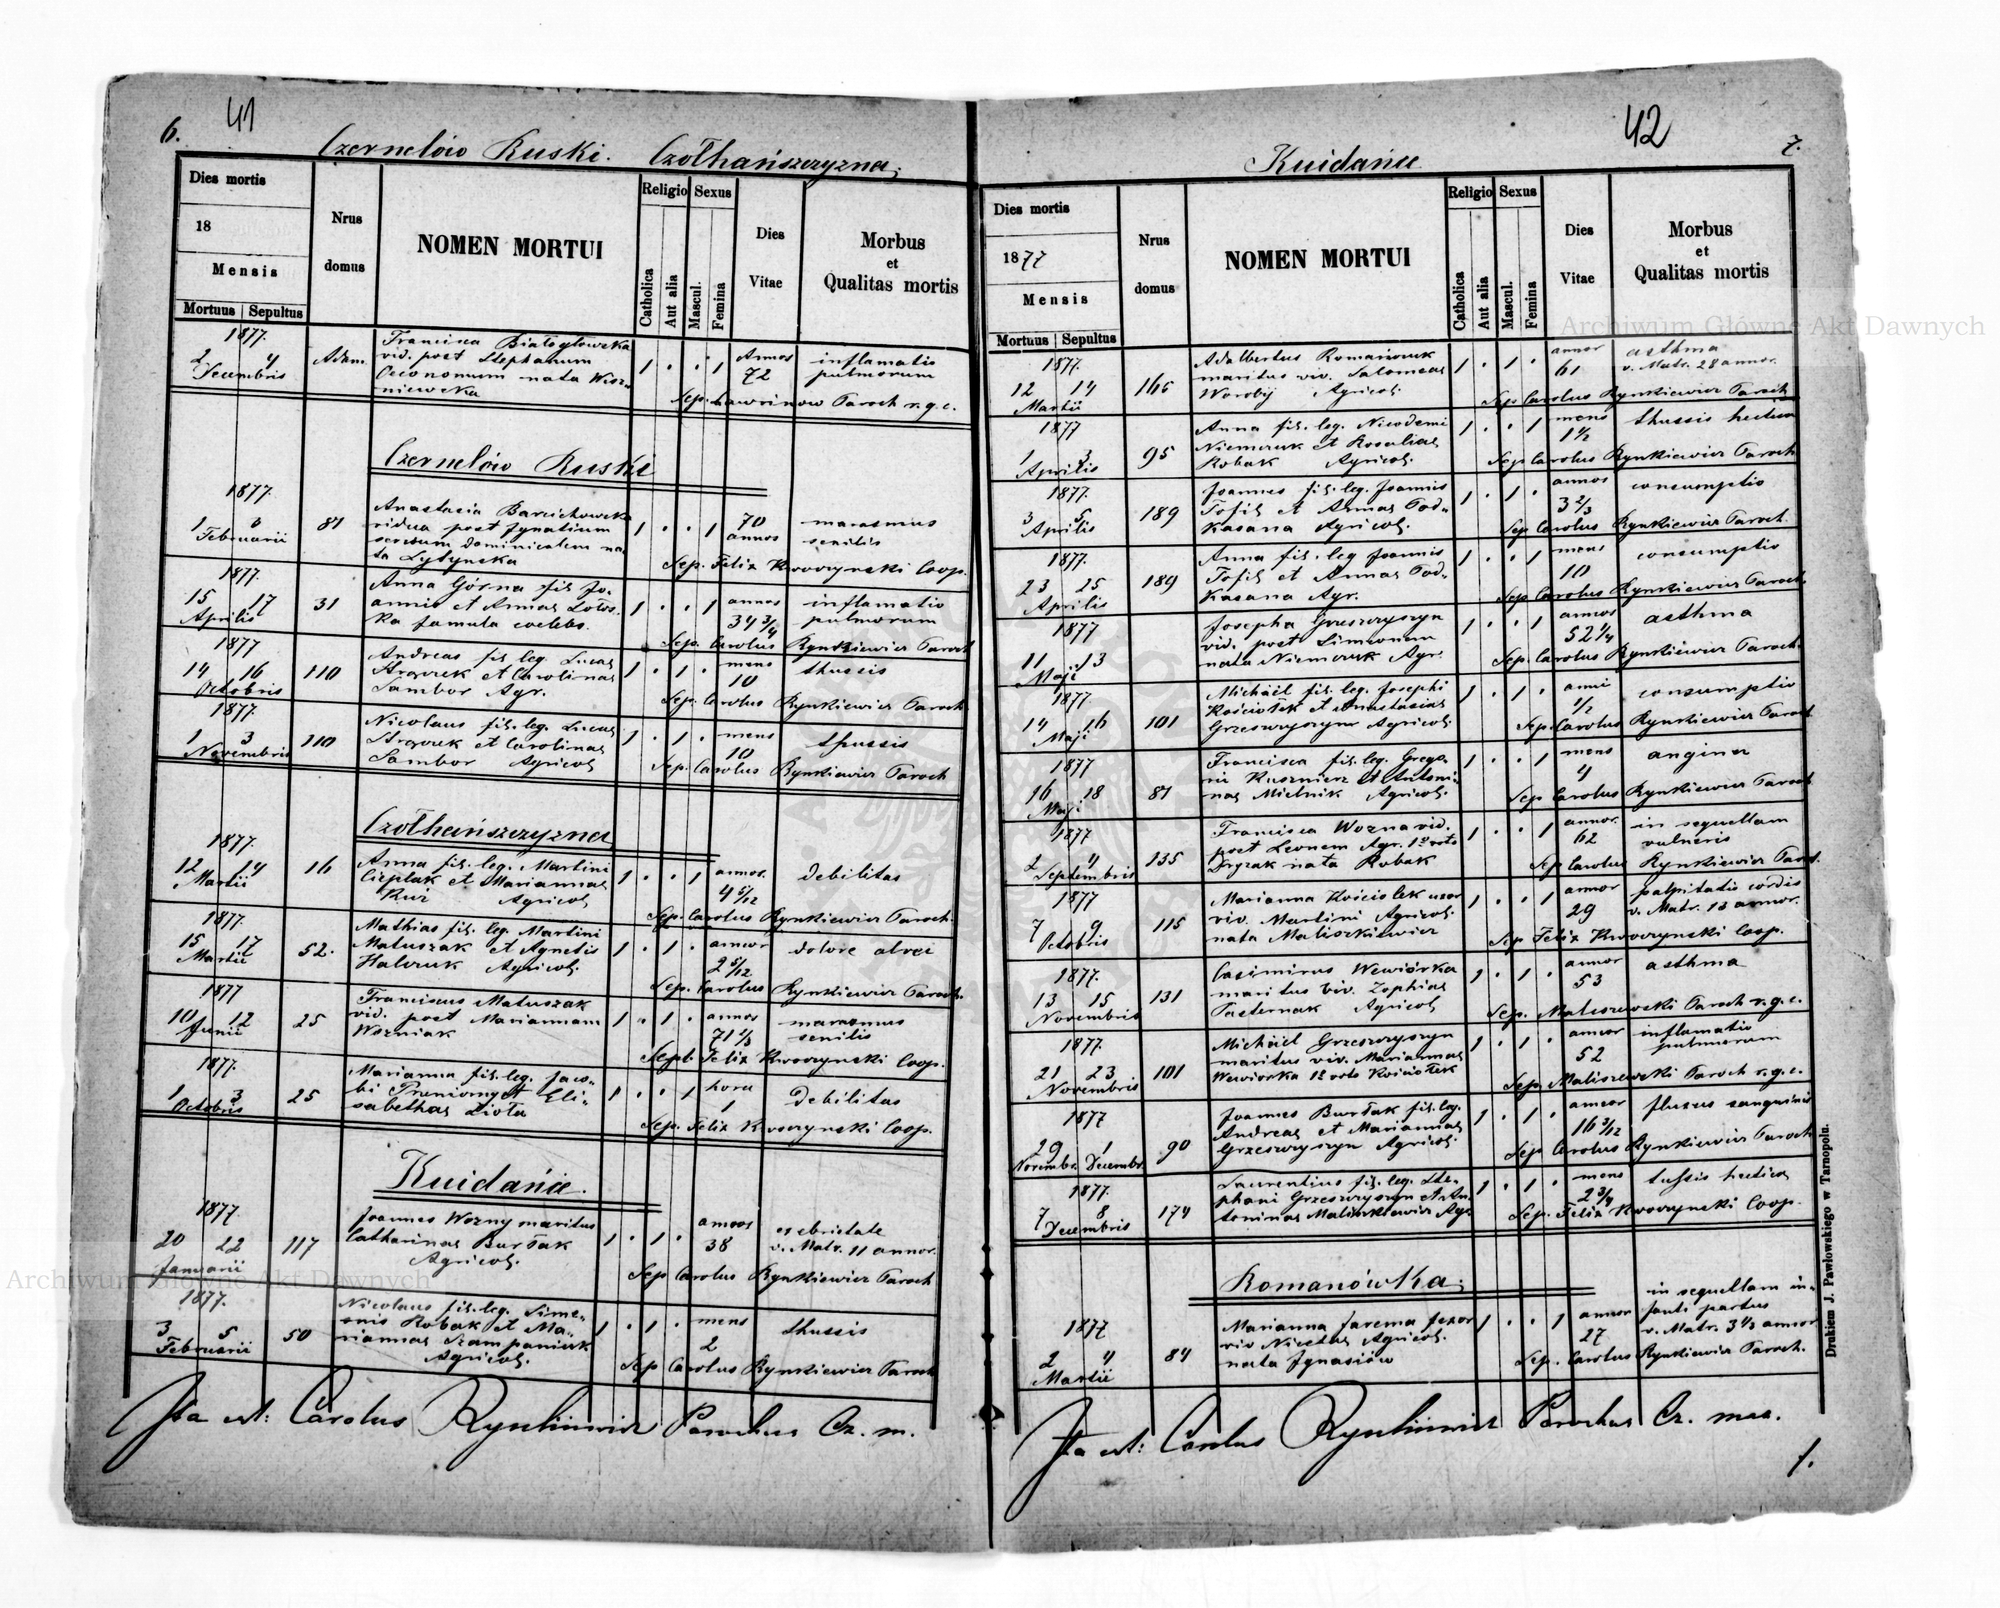 6.
41
Czernelów Ruski. Czołhańszczyzna.
Dies mortis
18
Mensis
Mortuus | Sepultus
Nrus
domus
NOMEN MORTUI
Religio
Catholica
Aut alia
Sexus
Mascul.
Femina
Dies
Vitae
Morbus
et
Qualitas mortis
1877.
2 4
Decembris
Francisca Białogłowska
vid. post Stephanum
Oeconomum nata Wisz-
niewska
1 . . 1
Annos
72
inflamatio
pulmorum
Sep. Lawrinow Paroch r.g.c.
Czernelów Ruski
1877.
1 3
Februarii
81
Anastasia
vidua post Ignatium
scribum dominicalem na-
ta Lytynska
1 . . 1
70
annos
marasmus
senilis
Sep. Felix Kwoczynski Coop.
1877.
15 17
Aprilis
31
Anna Górna fil. Jo-
annis et Annae
ka famula coelebs.
1 . . 1
annos
34 3/4
inflamatio
pulmorum
Sep. Carolus Rynkiewicz Paroch
1877
14 16
Octobris
110
Andreas fil. leg. Lucae
et Carolinae
Sambor Agr.
1 . 1 .
mens
10
thussis
Sep. Carolus Rynkiewicz Paroch
1877.
1 3
Novembris
110
Nicolaus fil. leg. Lucae
et Carolinae
Sambor Agricol.
1 . 1 .
mens
10
thussis
Sep. Carolus Rynkiewicz Paroch
Czołhańszczyzna
1877.
12 14
Martii
16
Anna fil. leg. Martini
Cieplak et Mariannae
Kuź Agricol.
1 . . 1
annos.
4 5/12
debilitas
Sep. Carolus Rynkiewicz Paroch.
1877.
15 17
Martii
52.
Mathias fil. leg. Martini
Matuszak et Agnetis
Halczuk Agricol.
1 . 1 .
annor
2 5/12
dolore alvei
Sep. Carolus Rynkiewicz Paroch.
1877
10 12
Junii
25
Franciscus Matuszak
vid. post Mariannam
Wozniak
1 . 1 .
annos
71 1/3
marasmus
senilis
Sept. Felix Kwoczynski Coop.
1877.
1 3
Octobris
25
Marianna fil. leg. Jaco-
bi et Eli-
sabethae Ziola
1 . . 1
hora
1
debilitas
Sep. Felix Kwoczynski Coop.
Kuidańce.
1877.
20 22
Januarii
117
Joannes Wozny maritus
Catharinae Burłak
Agricol.
1 . 1 .
annos
38
ex ebrietate
v. Matr. 11 annor.
Sep Carolus Rynkiewicz Paroch
1877.
3 5
Februarii
50
Nicolaus fil. leg. Sime-
onis Robak et Ma-
riannae Szampaniuk
Agricol.
1 . 1 .
mens
2
thussis
Sep Carolus Rynkiewicz Paroch
Ita est: Carolus Rynkiewicz Parochus Cz. m.
42
7.
Kuidańce
Dies mortis
1877
Mensis
Mortuus | Sepultus
Nrus
domus
NOMEN MORTUI
Religio
Catholica
Aut alia
Sexus
Mascul.
Femina
Dies
Vitae
Morbus
et
Qualitas mortis
1877.
12 14
Martii
Adalbertus Romańczuk
maritus viv. Salomeae
Worobij Agricol.
1 . 1 .
annor
61
asthma
v. Matr. 28 annor.
Sep Carolus Rynkiewicz Paroch
1877
1 3
Aprilis
95
Anna fil. leg. Nicodemi
Niemczuk et Rosaliae
Robak Agricol.
1 . . 1
mens
1 1/2
thussis hectica
Sep Carolus Rynkiewicz Paroch
1877.
3 5
Aprilis
189
Joannes fil. leg. Joannis
Tofil et Annae Pod-
kasana Agricol.
1 . 1 .
annos
3 2/3
consumptio
Sep Carolus Rynkiewicz Paroch.
1877.
23 25
Aprilis
189
Anna fil. leg Joannis
Tofil et Annae Pod-
kasana Agr.
1 . . 1
mens
10
consumptio
Sep. Carolus Rynkiewicz Paroch.
1877
11 13
Maji
Josepha Grzeszczyszyn
vid. post Simeonem
nata Niemczuk Agr.
1 . . 1
annos
52 1/4
asthma
Sep. Carolus Rynkiewicz Paroch.
1877.
14 16
Maji
101
Michäel fil. leg. Josephi
Kościołek et Anastasiae
Grzeszczyszyn Agricol.
1 . 1 .
anni
1/2
consumptio
Sep. Carolus Rynkiewicz Paroch.
1877
16 18
Maji
81
Francisca fil. leg. Grego-
rii Kusznierz et Antoni-
nae Mielnik Agricol.
1 . . 1
mens
4
angina
Sep Carolus Rynkiewicz Paroch
1877
2 4
Septembris
135
Francisca Wozna vid.
post Leonem Agr. 1º voto
nata Robak
1 . . 1
annor.
62
in sequellam
vulneris
Sep Carolus Rynkiewicz Paroch.
1877
7 9
Octobris
115
Marianna Kościolek uxor
viv. Martini Agricol.
nata Maliszkiewicz
1 . . 1
annor
29
palpitatio cordis
v. Matr. 13 annor.
Sep Felix Kwoczynski Coop.
1877.
13 15
Novembris
131
Casimirus Wewiórka
maritus viv. Zophiae
Pasternak Agricol.
1 . 1 .
annor
53
asthma
Sep. Maliszewski Paroch r.g.c.
1877.
21 23
Novembris
101
Michäel Grzeszczyszyn
maritus viv. Mariannae
Wewiorka 1º voto Kościołek
1 . 1 .
annor
52
inflamatio
pulmorum
Sep. Maliszewski Paroch r.g.c.
1877
29 1
Novembr. Decembr.
90
Joannes Burłak fil. leg.
Andreae et Mariannae
Grzeszczyszyn Agricol.
1 . 1 .
annor
16 3/12
fluxus sanguinis
Sep Carolus Rynkiewicz Paroch
1877.
7 8
Decembris
174
Laurentius fil. leg. Ste-
phani Grzeszczyszyn et An-
toninae Malinkiewicz Agr.
1 . 1 .
mens
2 3/4
tussis hectica
Sep. Felix Kwoczynski Coop.
Romanówka.
1877
2 4
Martii
84
Marianna Jarema uxor
viv Nicetae Agricol.
nata Ignasiów
1 . . 1
annor
27
in sequellam in-
fanti partus
v. Matr. 3 1/2 annor
Sep. Carolus Rynkiewicz Paroch.
Ita est: Carolus Rynkiewicz Parochus Cz. mm.
1.
Drukiem J. Pawłowskiego w Tarnopolu.
Archiwum Główne Akt Dawnych
Archiwum Główne Akt Dawnych